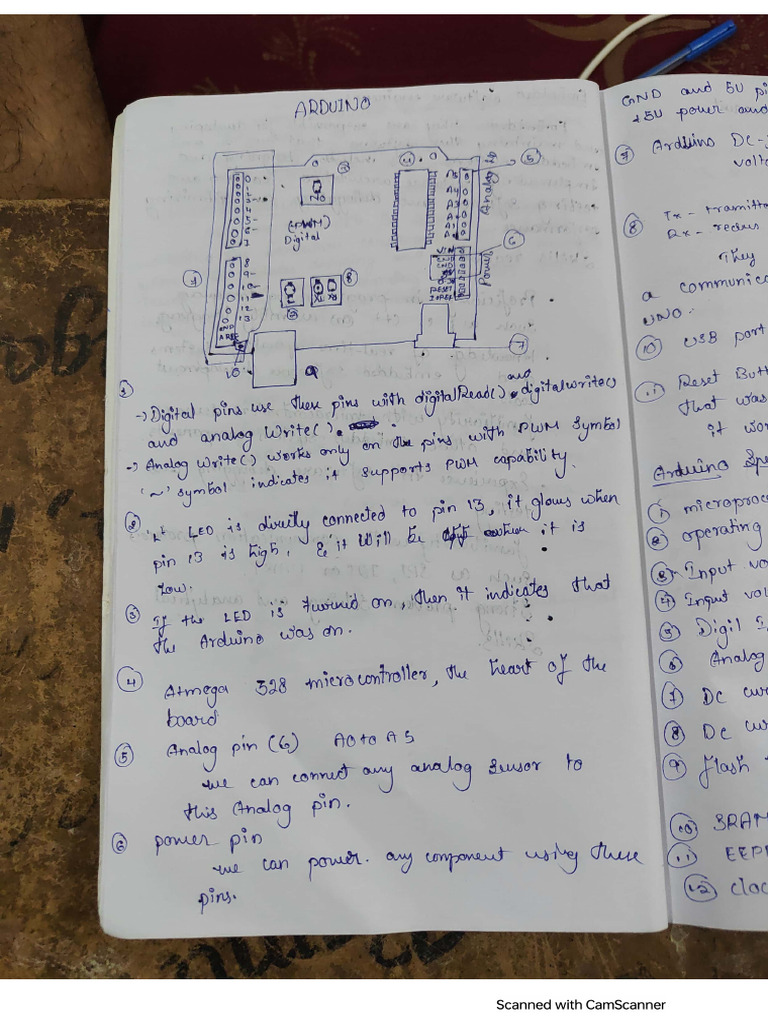 ARDUINO
Analog
Digital
Power
① → Digital pins use these pins with digitalRead() and digitalwrite()
and analog Write().
→ Analog write() works only on the pins with PWM symbol
'~' symbol indicates it supports PWM capability.
② LED is directly connected to pin 13, it glows when
pin 13 is high, & it will be off when it is
low.
③ If the LED is turned on, then it indicates that
the Arduino was on.
④ Atmega 328 microcontroller, the heart of the
board
⑤ Analog pin (6) A0 to A5
we can connect any analog sensor to
this Analog pin.
⑥ power pin
we can power. any component using these
pins.
GND and 5V pi
Arduino DC-
volta
⑧ Tx - tramitte
They
a communica
UNO.
⑩ USB port
⑪ Reset Butt
that was
it wor
Arduino Spe
① microproc
② operating
③ Input vo
④ Input vol
⑤ Digil I
⑥ Analog
⑦ DC cur
⑧ DC cur
⑨ Flash
⑩ SRAM
⑪ EEP
⑫ Cloc
Scanned with CamScanner